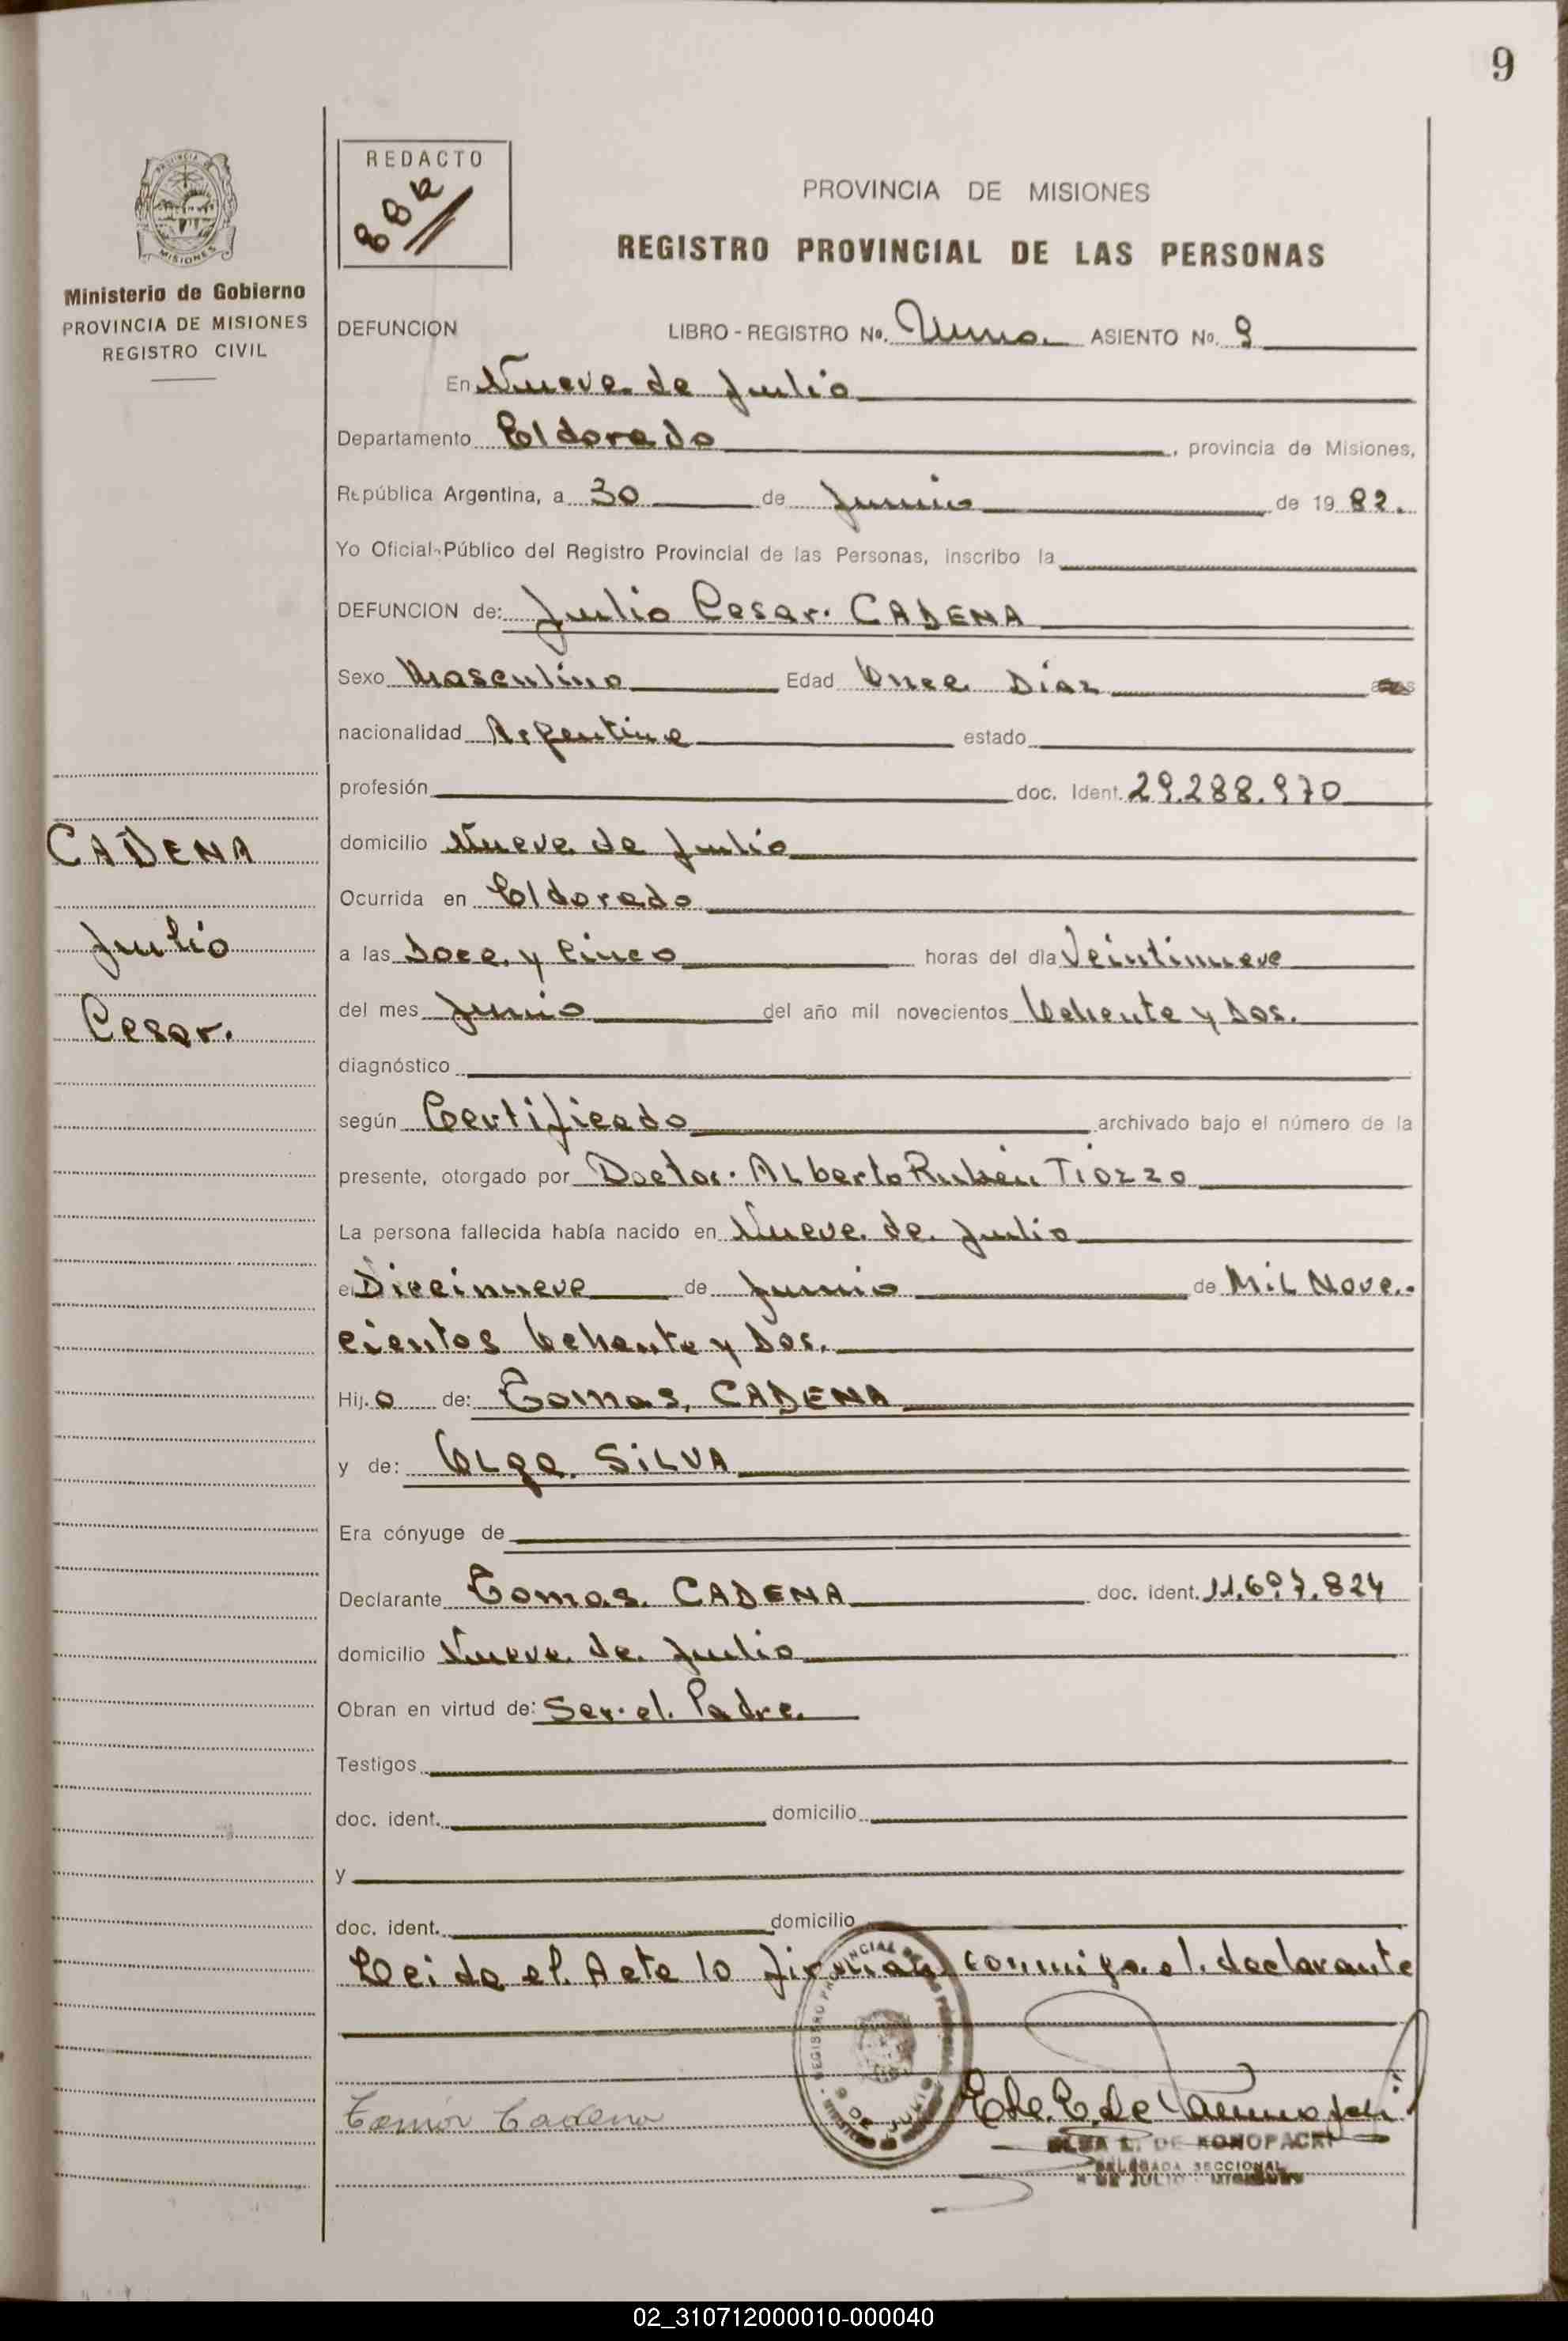 9
REDACTO
PROVINCIA DE MISIONES
REGISTRO PROVINCIAL DE LAS PERSONAS
Ministerio de Gobierno
PROVINCIA DE MISIONES
REGISTRO CIVIL
DEFUNCION LIBRO - REGISTRO No. Uno ASIENTO No. 9
En Nueve de Julio
Departamento Eldorado, provincia de Misiones,
República Argentina, a 30 de Junio de 1982.
Yo Oficial Público del Registro Provincial de las Personas, inscribo la
DEFUNCION de: Julio Cesar CADENA
Sexo Masculino Edad Once Días
nacionalidad Argentina estado
profesión doc. Ident. 29.288.970
CADENA
Julio
Cesar.
domicilio Nueve de Julio
Ocurrida en Eldorado
a las Doce y Cinco horas del día Veintinueve
del mes Junio del año mil novecientos Ochenta y Dos.
diagnóstico
según Certificado archivado bajo el número de la
presente, otorgado por Doctor Alberto Rubén Tiozzo
La persona fallecida había nacido en Nueve de Julio
el Diecinueve de Junio de Mil Nove-
cientos Ochenta y Dos.
Hijo de: Tomas CADENA
y de: Olga SILVA
Era cónyuge de
Declarante Tomas CADENA doc. ident. 11.697.824
domicilio Nueve de Julio
Obran en virtud de: Ser el Padre
Testigos
doc. ident. domicilio
y
doc. ident. domicilio
Leida el Acta la firman conmigo el declarante
Cadena
DE KONOPACKI
DELEGADA SECCIONAL
DE JULIO - MISIONES
02_310712000010-000040